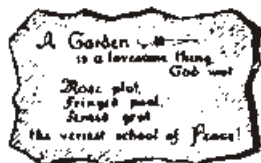 A Garden
is a lovesome thing
God wot
Rose plot,
Fringed pool,
Ferned grot
the veriest school of Peace!